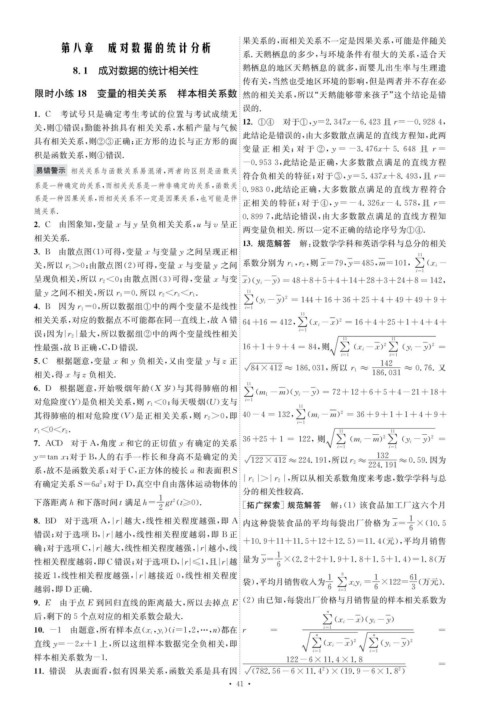 第八章 成对数据的统计分析
8.1 成对数据的统计相关性
限时小练18 变量的相关关系 样本相关系数
1. C 考试号只是确定考生考试的位置与考试成绩无
关,则①错误;勤能补拙具有相关关系,水稻产量与气候
具有相关关系,则②③正确;正方形的边长与正方形的面
积是函数关系,则④错误.
易错警示 相关关系与函数关系易混淆,两者的区别是函数关
系是一种确定的关系,而相关关系是一种非确定的关系,函数关
系是一种因果关系,而相关关系不一定是因果关系,也可能是伴
随关系.
2. C 由图象知,变量 x 与 y 呈负相关关系,u 与 v 呈正
相关关系.
3. B 由散点图(1)可得,变量 x 与变量 y 之间呈现正相
关,所以 r₁>0;由散点图(2)可得,变量 x 与变量 y 之间
呈现负相关,所以 r₂<0;由散点图(3)可得,变量 x 与变
量 y 之间不相关,所以 r₃=0.所以 r₂<r₃<r₁.
4. B 因为 r₁=0,所以数据组①中的两个变量不是线性
相关关系,对应的数据点不可能都在同一直线上,故 A 错
误;因为|r₂|最大,所以数据组②中的两个变量线性相关
性最强,故 B 正确,C,D 错误.
5. C 根据题意,变量 x 和 y 负相关,又由变量 y 与 z 正
相关,得 x 与 z 负相关.
6. D 根据题意,开始吸烟年龄(X 岁)与其得肺癌的相
对危险度(Y)是负相关关系,则 r₁<0;每天吸烟(U)支与
其得肺癌的相对危险度(V)是正相关关系,则 r₂>0,即
r₁<0<r₂.
7. ACD 对于 A,角度 x 和它的正切值 y 有确定的关系
y=tan x;对于 B,人的右手一柞长和身高不是确定的关
系,故不是函数关系;对于 C,正方体的棱长 a 和表面积 S
有确定关系 S=6a²;对于 D,真空中自由落体运动物体的
下落距离 h 和下落时间 t 满足 h=1/2 gt²(t≥0).
8. BD 对于选项 A,|r|越大,线性相关程度越强,即 A
错误;对于选项 B,|r|越小,线性相关程度越弱,即 B 正
确;对于选项 C,|r|越大,线性相关程度越强,|r|越小,线
性相关程度越弱,即 C 错误;对于选项 D,|r|≤1,且|r|越
接近 1,线性相关程度越强,|r|越接近 0,线性相关程度
越弱,即 D 正确.
9. E 由于点 E 到回归直线的距离最大,所以去掉点 E
后,剩下的 5 个点对应的相关系数会最大.
10. −1 由题意,所有样本点(xᵢ,yᵢ)(i=1,2,…,n)都在
直线 y=−2x+1 上,所以这组样本数据完全负相关,即
样本相关系数为−1.
11. 错误 从表面看,似有因果关系,函数关系是具有因
果关系的,而相关关系不一定是因果关系,可能是伴随关
系.天鹅栖息的多少,与环境条件有很大的关系,适合天
鹅栖息的地区天鹅栖息的就多,而婴儿出生率与生理遗
传有关,当然也受地区环境的影响,但是两者并不存在必
然的相关关系,所以“天鹅能够带来孩子”这个结论是错
误的.
12. ①④ 对于①,y=2.347x−6.423 且 r=−0.928 4,
此结论是错误的,由大多数散点满足的直线方程知,此两
变量正相关;对于②,y=−3.476x+5.648 且 r=
−0.953 3,此结论是正确,大多数散点满足的直线方程
符合负相关的特征;对于③,y=5.437x+8.493,且 r=
0.983 0,此结论正确,大多数散点满足的直线方程符合
正相关的特征;对于④,y=−4.326x−4.578,且 r=
0.899 7,此结论错误,由大多数散点满足的直线方程知
两变量负相关.所以一定不正确的结论序号为①④.
13. 规范解答 解:设数学学科和英语学科与总分的相关
系数分别为 r₁,r₂,则 x̄=79,ȳ=485,m̄=101,∑(xᵢ−
x̄)(yᵢ−ȳ)=48+8+5+4+14+28+3+24+8=142,
∑(yᵢ−ȳ)²=144+16+36+25+4+49+49+9+
64+16=412,∑(xᵢ−x̄)²=16+4+25+1+4+4+
16+1+9+4=84,则√∑(xᵢ−x̄)²∑(yᵢ−ȳ)²=
√84×412≈186.031,所以 r₁≈142/186.031≈0.76.又
∑(mᵢ−m̄)(yᵢ−ȳ)=72+12+6+5+4−21+18+
40−4=132,∑(mᵢ−m̄)²=36+9+1+1+4+9+
36+25+1=122,则√∑(mᵢ−m̄)²∑(yᵢ−ȳ)²=
√122×412≈224.191,所以 r₂≈132/224.191≈0.59.因为
|r₁|>|r₂|,所以从相关系数角度来考虑,数学学科与总
分的相关性较高.
[拓广探索]规范解答 解:(1) 该食品加工厂这六个月
内这种袋装食品的平均每袋出厂价格为 x̄=1/6×(10.5
+10.9+11+11.5+12+12.5)=11.4(元),平均月销售
量为 ȳ=1/6×(2.2+2+1.9+1.8+1.5+1.4)=1.8(万
袋),平均月销售收入为 1/6∑xᵢyᵢ=1/6×122=61/3(万元).
(2) 由已知,每袋出厂价格与月销售量的样本相关系数为
r=∑(xᵢ−x̄)(yᵢ−ȳ)/√∑(xᵢ−x̄)²√∑(yᵢ−ȳ)²=
122−6×11.4×1.8/√(782.56−6×11.4²)×(19.9−6×1.8²)=
· 41 ·